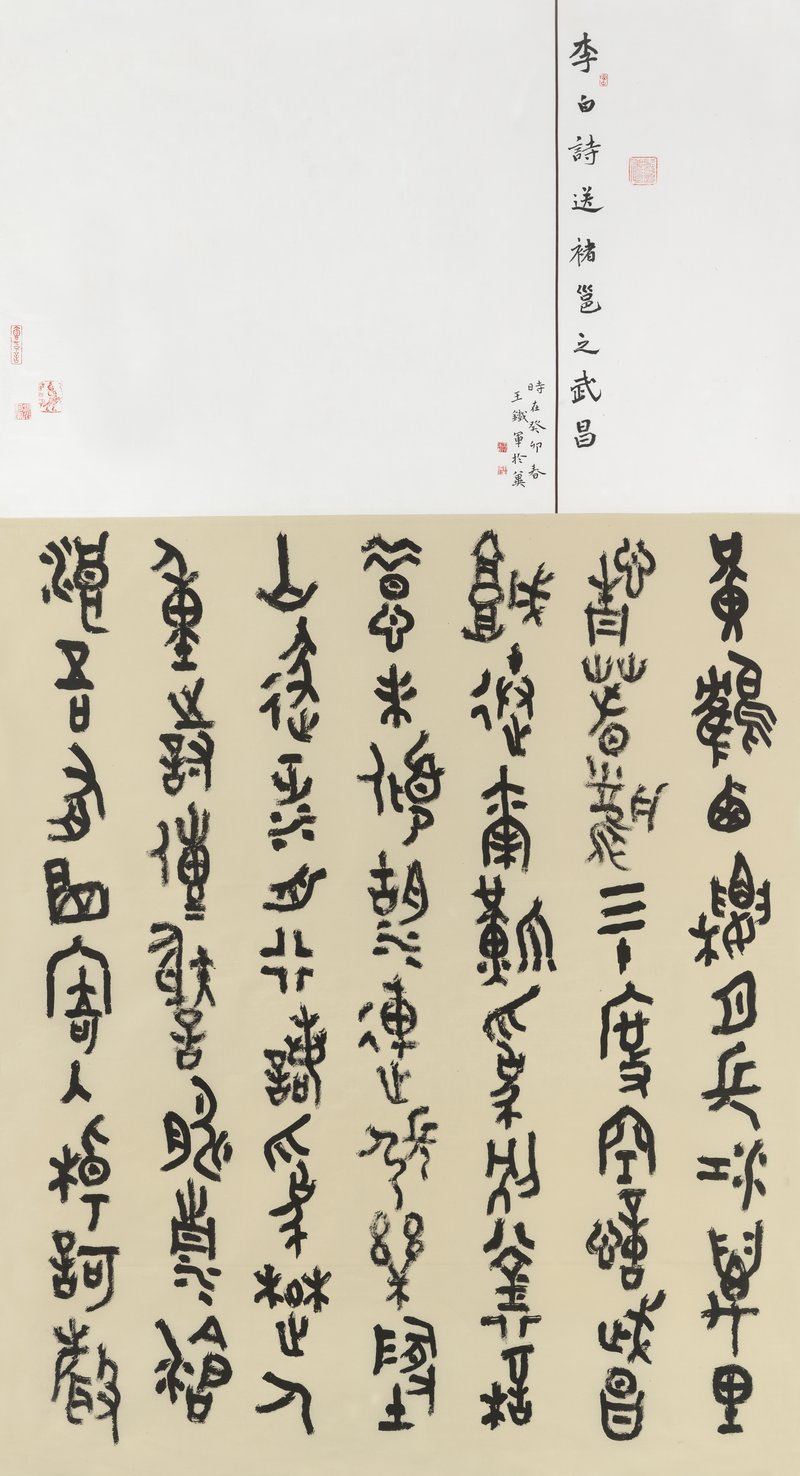 李白詩送褚邕之武昌
時在癸卯春
王鐵軍於冀
黃鶴西樓月長江萬里
情春風三十度空憶武昌
城送爾難為別銜杯
惜未傾湖連張樂地
山逐泛舟行諾為楚人
重詩傳謝朓清滄
浪吾有曲寄入棹歌聲